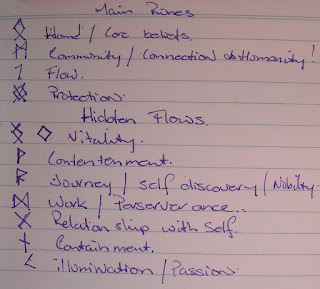 Main Runes
ᛟ Island / Core beliefs.
ᛗ Community / Connection to Humanity!
ᛚ Flow.
Protection.
Hidden Flows.
ᛝ ◇ Vitality.
ᚹ Contentenment.
ᚱ Journey / self discovery / Nobility.
ᛞ Work / Perserverance..
ᚷ Relationship with Self.
ᚾ Containment.
ᚲ illumination / Passion.